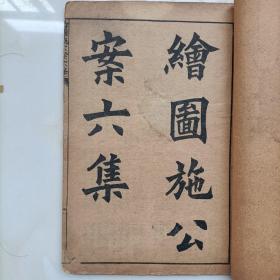 繪圖施公
案六集